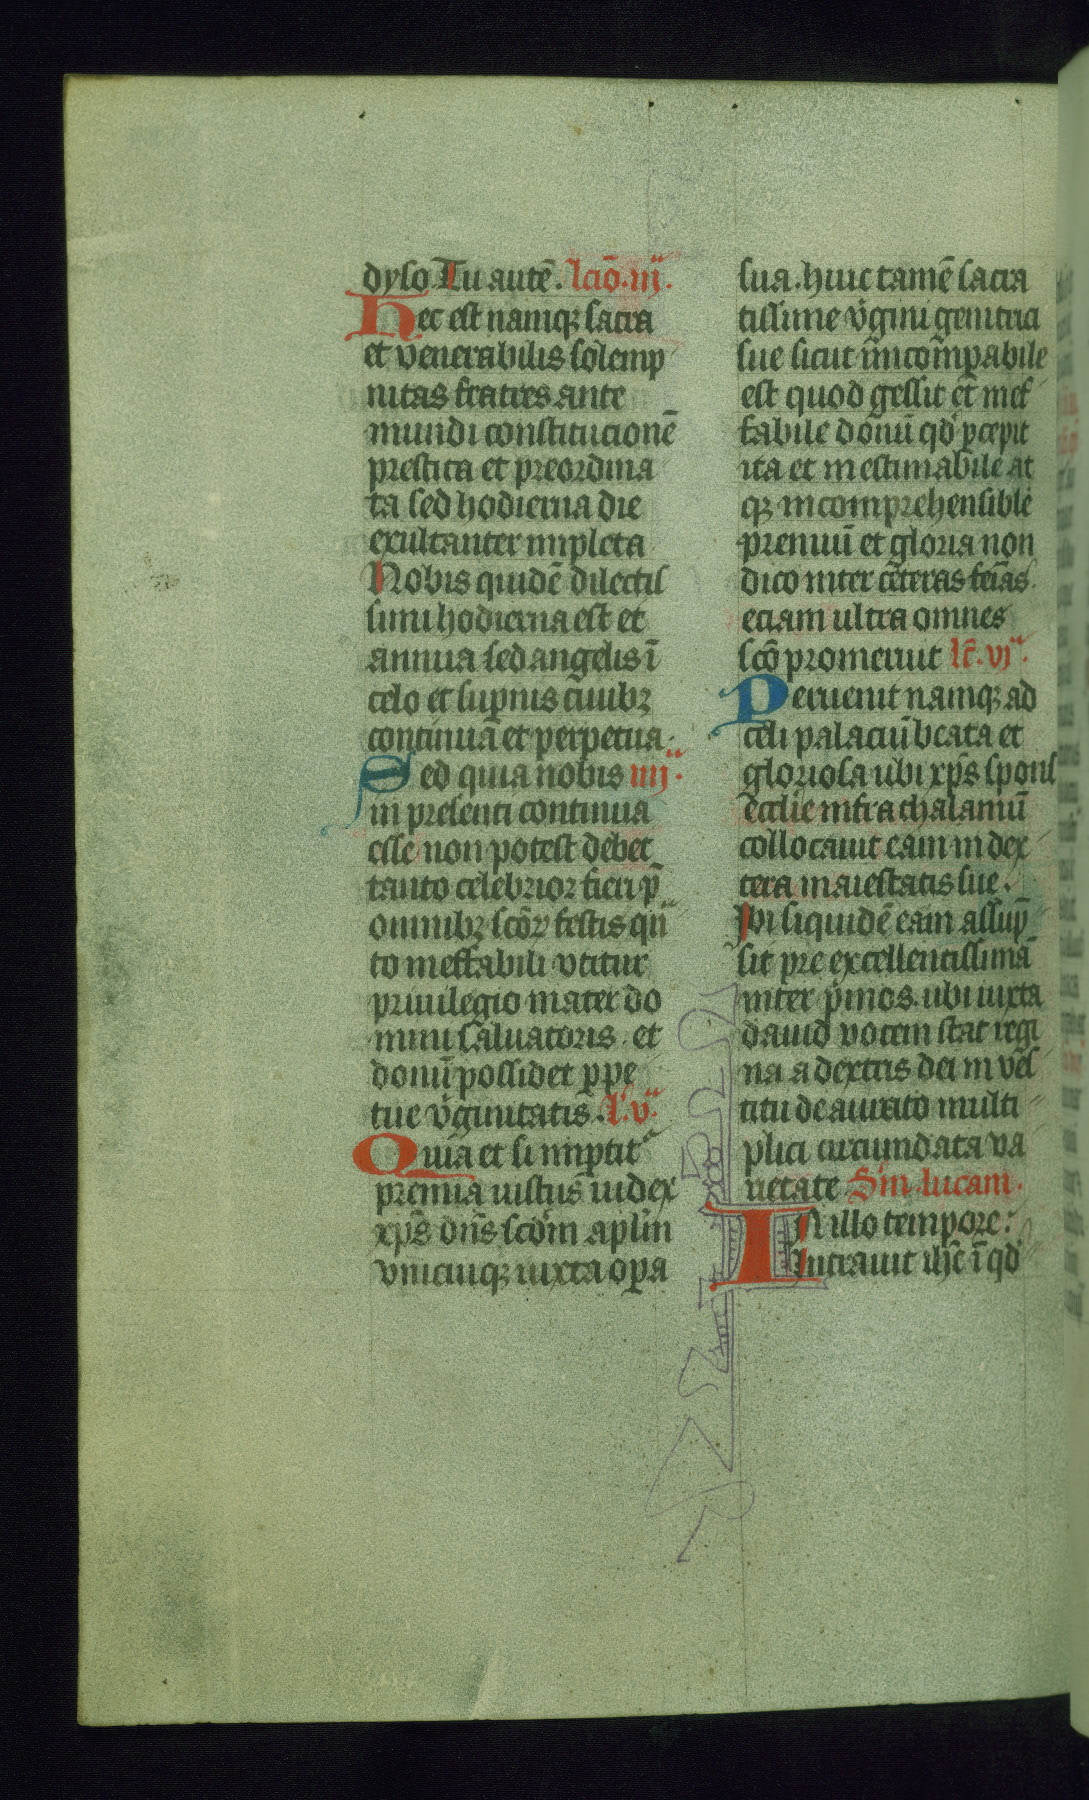 dyso Tu autē. lcīo.iij.
Hec est namqȝ sacra
et venerabilis solemp
nitas fratres ante
mundi constitucionē
prestita et preordina
ta sed hodierna die
exultanter impleta
Nobis quidē dilectis
simi hodierna est et
annua sed angelis ī
celo et supnis ciuibȝ
continuā et perpetua.
Sed quia nobis iiij.
in presenti continua
esse non potest debet
tanto celebrior fieri p̄
omnibȝ scōꝝ festis qn̄
to ineffabili vtitur
priuilegio mater do
mini saluatoris. et
donū possidet ꝑpe
tue v̇ginitatis. l.v.
Quia et si impꝑtit
premia iustus iudex
xp̄s dn̄s scdm aplm
vnicuiqȝ iuxta oꝑa
sua. huic tamē sacra
tissime v̇gini genitrici
sue sicut īncōmꝑabile
est quod gessit et inef
fabile donū qd ꝑcepit
ita et inestimabile at
qȝ incomprehensibile
premiū et gloria non
dico inter cēteras feīas.
eciam ultra omnes
scō promeruit lc̄.vj.
Peruenit namqȝ ad
celi palaciū beata et
gloriosa ubi xp̄s spons
ecclīe infra thalamū
collocauit eam in dex
tera maiestatis sue.
Ibi siquidē eam assūp
sit pre excellentissimā
inter pͥmos. ubi iuxta
dauid vocem stat regi
na a dextris dei in vēs
titu deaurato multi
plici circumdata va
rietate Sm̄ lucam.
IN illo tempore:
Intrauit ihc̄ ī qd